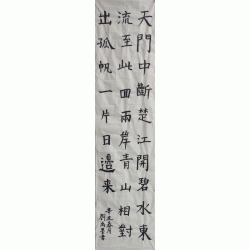 天門中斷楚江開碧水東
流至此回兩岸青山相對
出孤帆一片日邊來
辛丑春月